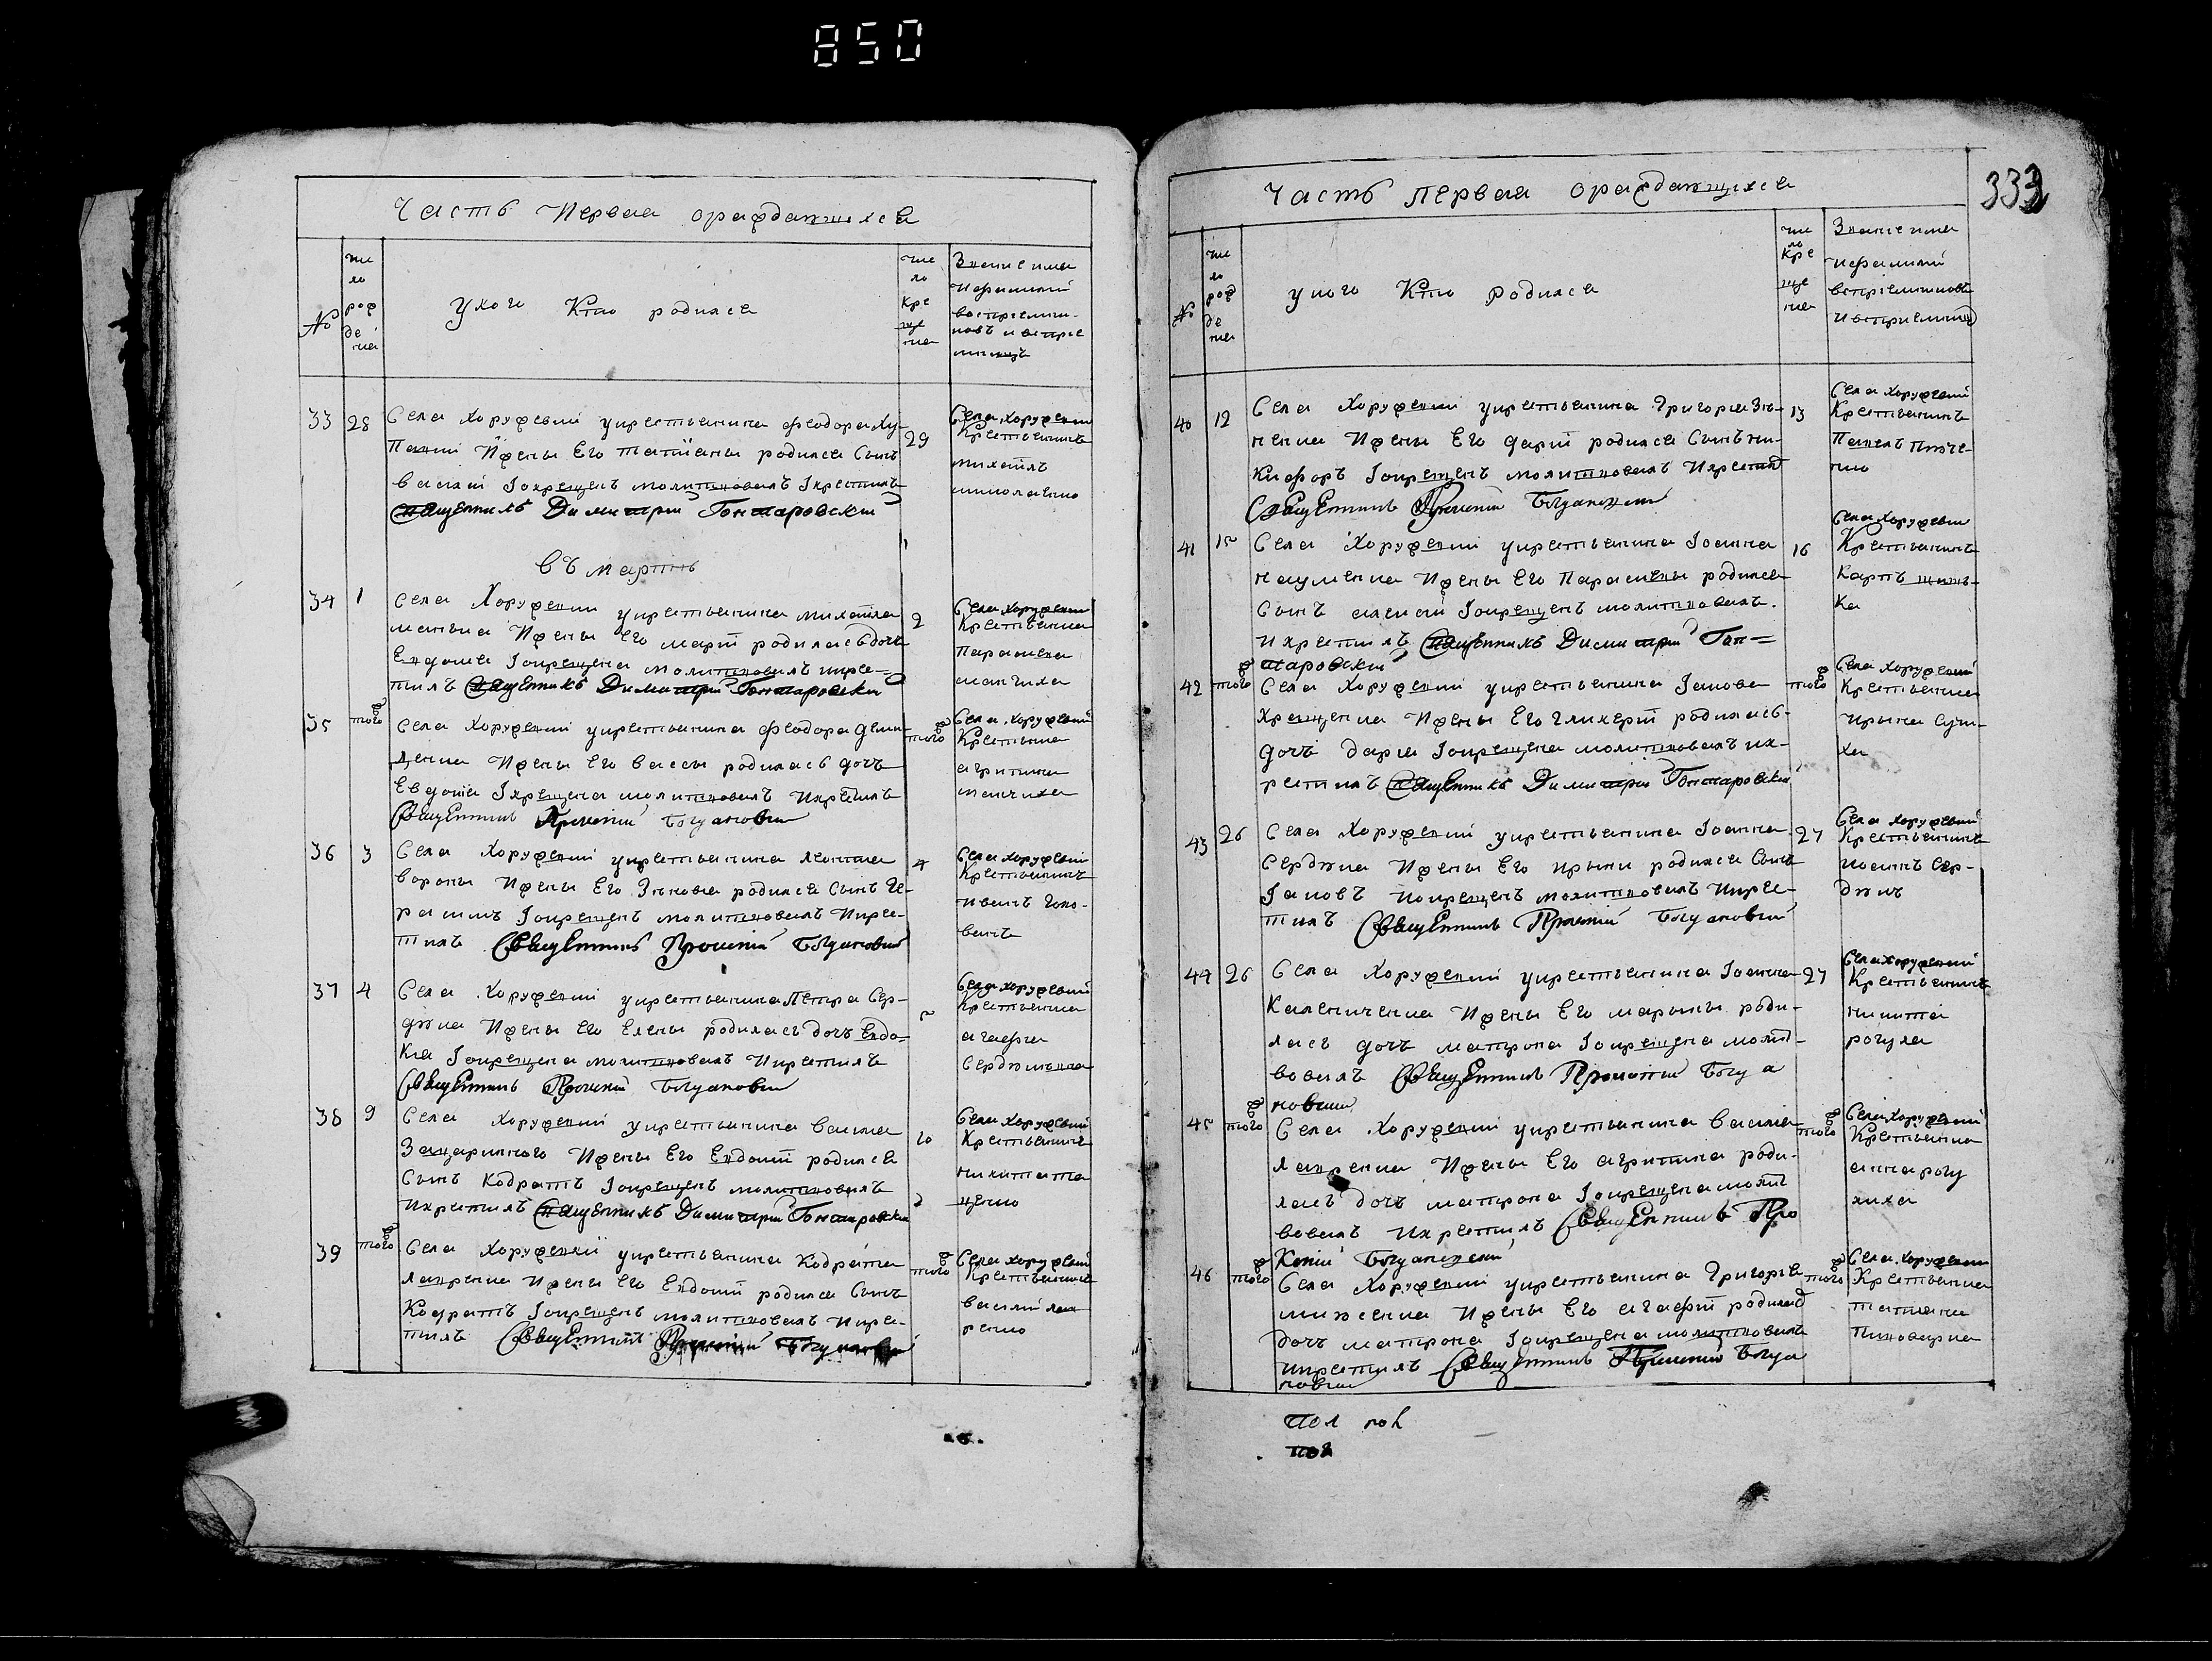 850
Часть Первая ораждающихся
№
чис
ло
рож
де
ния
У кого Кто родился
чис
ло
Кре
ще
ния
Звание имя
и фамилии
восприемни-
ковъ и воспри
емницъ
33 28
Села Хоружевки у крестьянина Феодора Ху-
Павки Ижены Его татіаны родился Сынъ
василій Iокрещенъ молитвовалъ Iкрестилъ
Священникъ Димитрій Гончаровскій
29
Села Хоружевки
Крестьянинъ
михаилъ
николаенко
въ мартѣ
34 1
Села Хоружевки у крестьянина михаила
Ижены Его марѳ родилась дочь
Евдокия Iокрещена молитвовалъ икре-
тилъ Священникъ Димитрій Гончаровскій
2
Села Хоружевки
Крестьянка
Параскева
35 того ж
Села Хоружевки у крестьянина Феодора Деми-
денка Ижены Его вассы родилась дочь
Евдокия Iкрещена молитвовалъ Икрестилъ
Священникъ Прокопій Богдановскій
того ж
Села Хоружевки
Крестьянка
агрипина
36 3
Села Хоружевки у крестьянина леонтия
вороны Ижены Его Зѣновия родился Сынъ Ге-
расимъ Iокрещенъ молитвовалъ Икре-
тилъ Священникъ Прокопій Богдановскій
4
Села Хоружевки
Крестьянинъ
иванъ Голо-
вань
37 4
Села Хоружевки у крестьянина Петра Сер-
дюка Ижены Его Елены родилась дочь Евдо-
Кия Iокрещена молитвовалъ Икрестилъ
Священникъ Прокопій Богдановскій
5
Села Хоружевки
Крестьянка
агафия
Сердюкова
38 9
Села Хоружевки у крестьянина василия
Ижены Его Евдокиѣ родился
Сынъ Кодратъ Iокрещенъ молитвовалъ
Икрестилъ Священникъ Димитрій Гончаровскій
10
Села Хоружевки
Крестьянинъ
никита та
ценко
39 того ж
Села Хоружевки у крестьянина Кодрата
лавренка Ижены Его Евдокиѣ родился Сынъ
Кодратъ Iокрещенъ молитвовалъ Икре-
тилъ Священникъ Прокопій Богдановскій
того ж
Села Хоружевки
Крестьянинъ
василій лав
ренко
333
Часть первая ораждающихся
№
чис
ло
рож
де
ния
у кого Кто родился
чис
ло
Кре
ще
ния
Звание имя
и фамилии
восприемниковъ
и восприемницъ
40 12
Села Хоружевки у крестьянина Григория Зѣ-
ненка Ижены Его дариѣ родился Сынъ ни-
Кифоръ Iокрещенъ молитвовалъ Икрестил
Священникъ Прокопій Богдановскій
13
Села Хоружевки
Крестьянинъ
Павелъ
41 15
Села Хоружевки у крестьянина Iоанна
науменка Ижены Его Параскевы родился
Сынъ алексій Iокрещенъ молитвовалъ
икрестилъ Священникъ Димитрій Гон=
чаровскій
16
Села Хоружевки
Крестьянинъ
Карпъ
42 того ж
Села Хоружевки у крестьянина Iакова
Хрещенка Ижены Его Гликериѣ родилась
дочь дария Iокрещена молитвовалъ ик-
ретилъ Священникъ Димитрій Гончаровскій
того ж
Села Хоружевки
Крестьянка
ирына
43 26
Села Хоружевки у крестьянина Iоанна
Сердюка Ижены Его ирыни родился Сынъ
Iаковъ Iокрещенъ молитвовалъ Икре-
тилъ Священникъ Прокопій Богдановскій
27
Села Хоружевки
Крестьянинъ
иоаннъ Сер-
дюкъ
44 26
Села Хоружевки у крестьянина Iоанна
Калениченка Ижены Его марыны роди-
лась дочь матрона Iокрещена молит-
вовалъ Священникъ Прокопій Богда
новскій
27
Села Хоружевки
Крестьянинъ
никита
рогуля
45 того ж
Села Хоружевки у крестьянина василия
лавренка Ижены Его агрипина роди-
лась дочь матрона Iокрещена молит
вовалъ Икрестилъ Священникъ Про
Копій Богдановскій
того ж
Села Хоружевки
Крестьянка
анна рогу
лиха
46 того ж
Села Хоружевки у крестьянина Григория
михенка Ижены Его агафиѣ родилас
дочь матрона Iокрещена молитвовалъ
икрестилъ Священникъ Прокопій Богда
новскій
того ж
Села Хоружевки
Крестьянка
татиана
Пивоварка